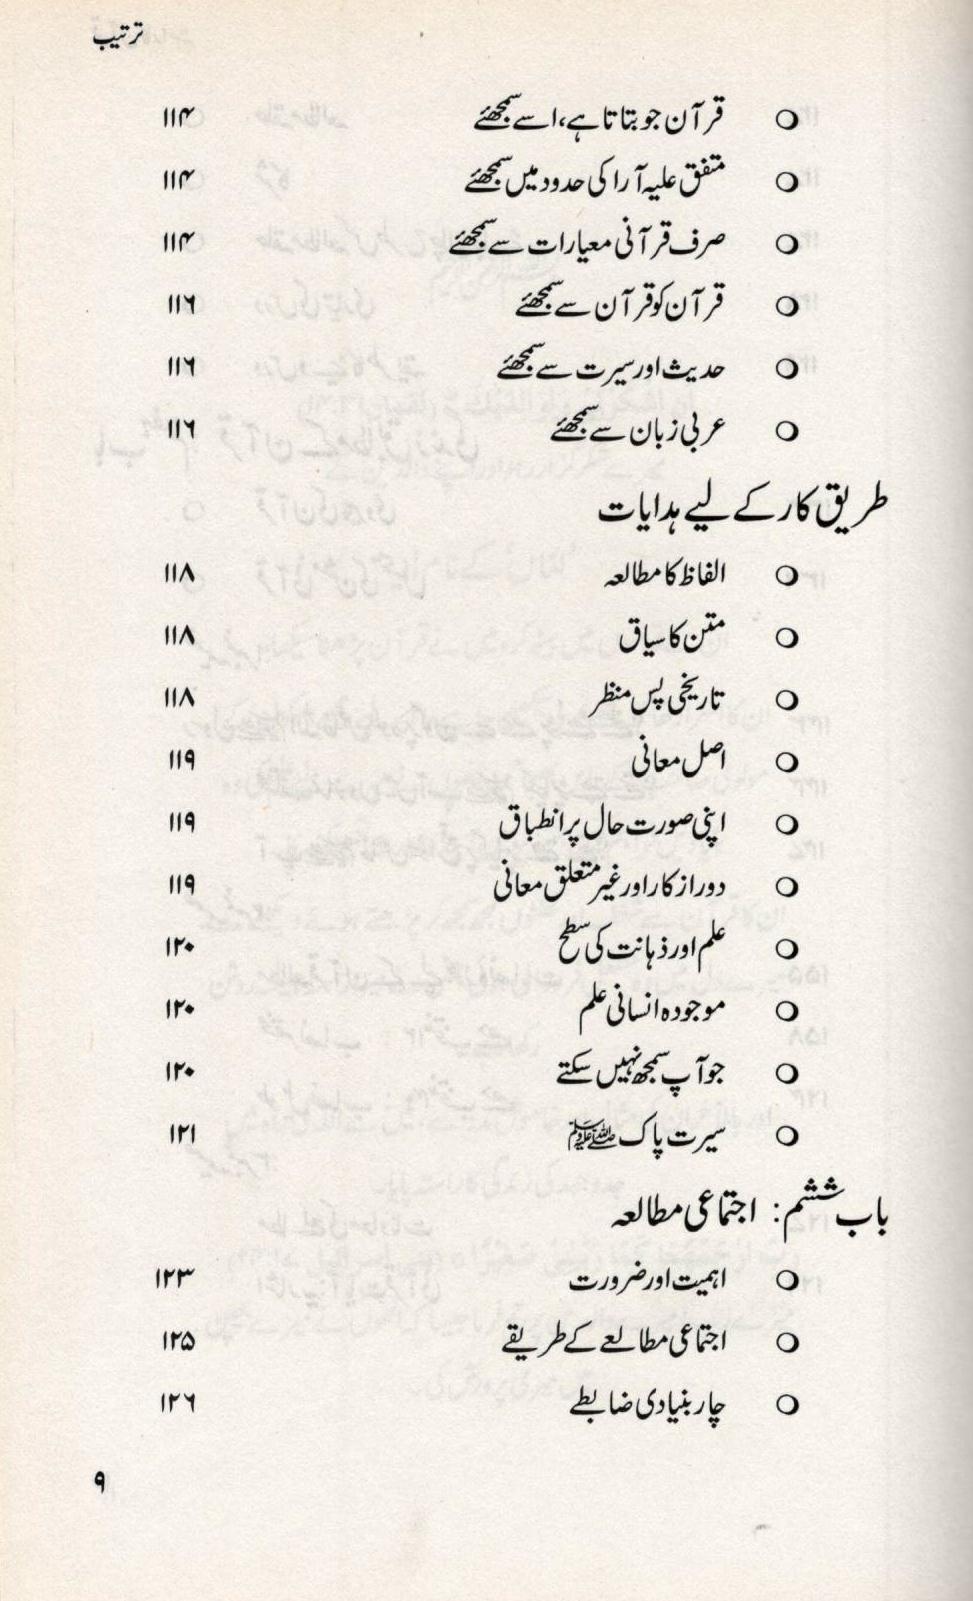 ترتیب
قرآن جو بتاتا ہے، اسے سمجھئے ۱۱۴
متفق علیہ آرا کی حدود میں سمجھئے ۱۱۴
صرف قرآنی معیارات سے سمجھئے ۱۱۴
قرآن کو قرآن سے سمجھئے ۱۱۶
حدیث اور سیرت سے سمجھئے ۱۱۶
عربی زبان سے سمجھئے ۱۱۶
طریق کار کے لیے ہدایات
الفاظ کا مطالعہ ۱۱۸
متن کا سیاق ۱۱۸
تاریخی پس منظر ۱۱۸
اصل معانی ۱۱۹
اپنی صورت حال پر انطباق ۱۱۹
دور از کار اور غیر متعلق معانی ۱۱۹
علم اور ذہانت کی سطح ۱۲۰
موجودہ انسانی علم ۱۲۰
جو آپ سمجھ نہیں سکتے ۱۲۰
سیرت پاک ﷺ ۱۲۱
باب ششم: اجتماعی مطالعہ
اہمیت اور ضرورت ۱۲۳
اجتماعی مطالعے کے طریقے ۱۲۵
چار بنیادی ضابطے ۱۲۶
۹